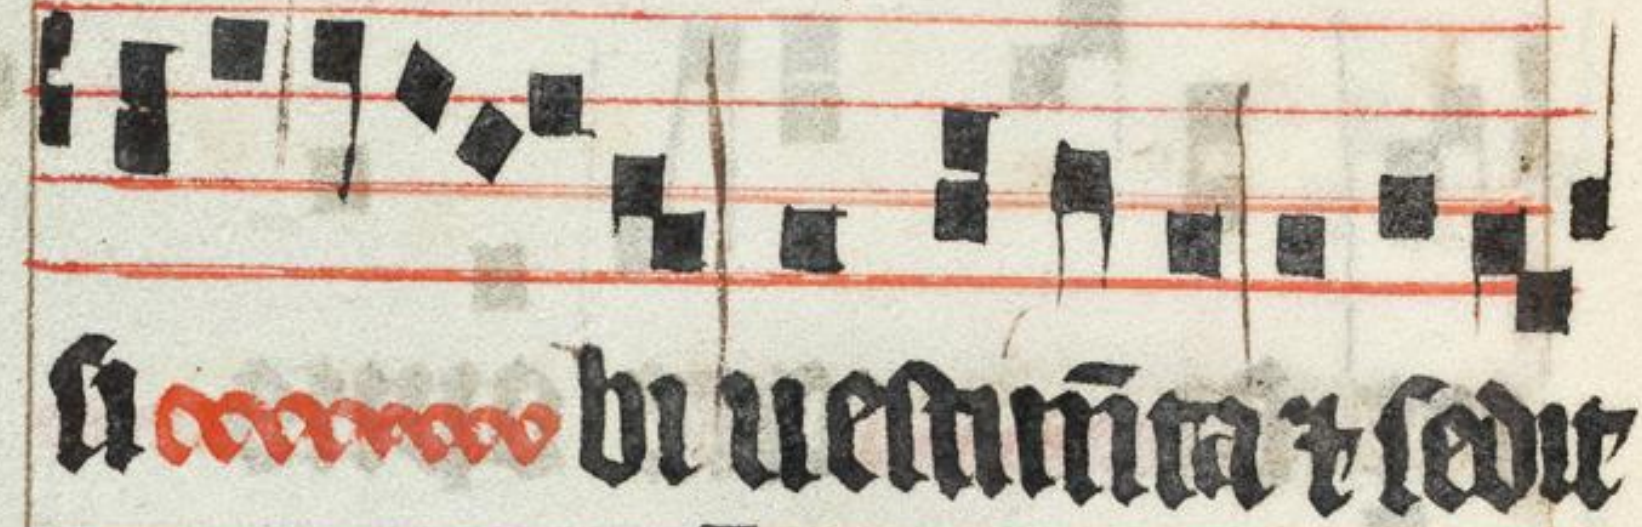 si bi uestim̄ta ⁊ sedit